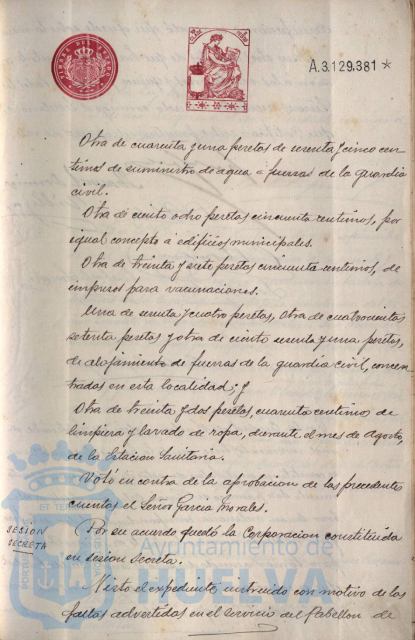 TIMBRE DEL ESTADO
A.3.129.381*
Otra de cuarenta y una pesetas de sesenta y cinco cen-
timos de suministro de agua á fuerzas de la guardia
civil.
Otra de ciento ocho pesetas cincuenta centimos, por
igual concepto á edificios municipales.
Otra de treinta y siete pesetas cincuenta centimos, de
impresos para vacunaciones.
Una de sesenta y cuatro pesetas, otra de cuatrocientas
setenta pesetas y otra de ciento sesenta y una pesetas,
de alojamiento de fuerzas de la guardia civil, concen-
tradas en esta localidad; y
Otra de treinta y dos pesetas, cuarenta centimos, de
limpieza y lavado de ropa, durante el mes de Agosto,
de la Estacion Sanitaria.
Votó en contra de la aprobacion de las precedentes
cuentas el Señor Garcia Morales.
SESION
SECRETA
Por su acuerdo quedó la Corporacion constituida
en sesion secreta.
Visto el expediente instruido con motivo de las
faltas advertidas en el servicio del Pabellon de
Ayuntamiento de
HUELVA